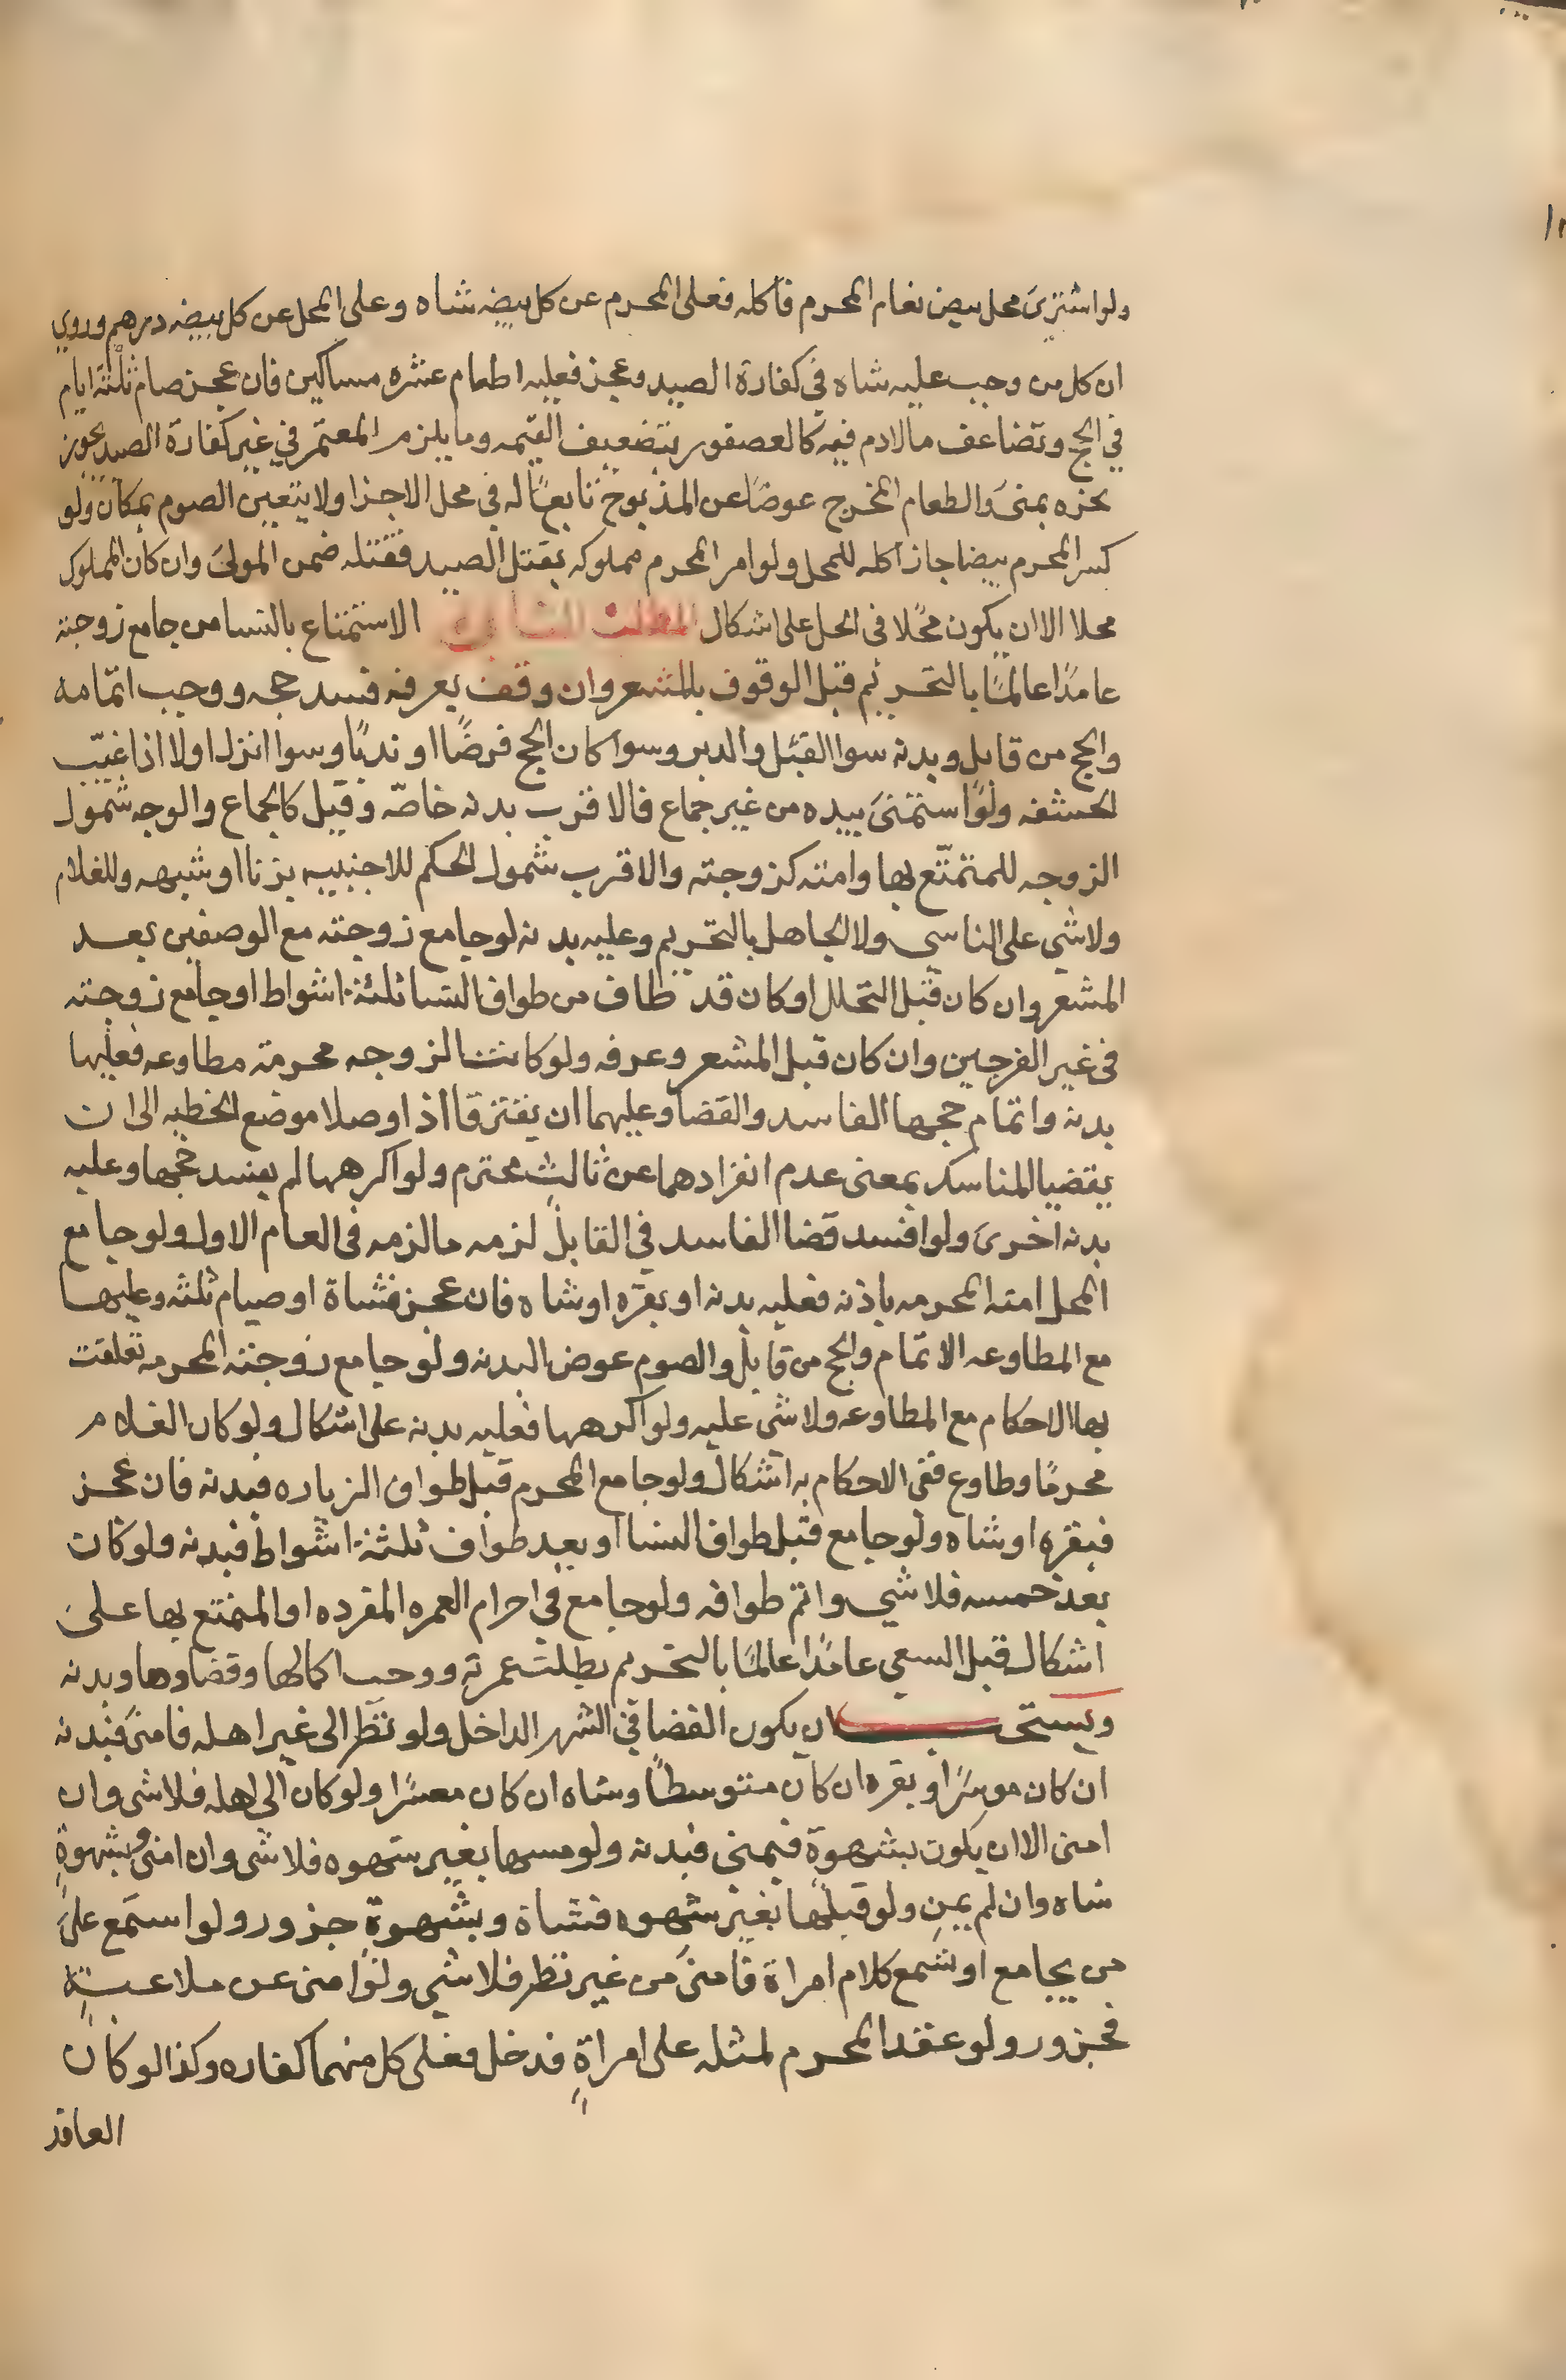 ولو اشترى محل بيض نعام المحرم فاكله فعلى المحرم عن كل بيضه شاه وعلى المحل عن كل بيضه درهم وروي
ان كل من وجب عليه شاه في كفارة الصيد وعجز فعليه اطعام عشره مساكين فان عجز صام ثلثة ايام
في الحج وتضاعف مالا دم فيه كالعصفور بتضعيف القيمه وما يلزم المعتمر في غير كفارة الصيد يجوز
نحره بمنى والطعام المخرج عوضا عن المذبوح تابعا له في محل الاجزا ولا يتعين الصوم بمكان ولو
كسر المحرم بيضا جاز اكله للمحل ولو امر المحرم مملوكه بقتل الصيد فقتله ضمن المولى وان كان المملوك
محلا الا ان يكون محلا في الحل على اشكال المطلب الثاني الاستمتاع بالنسا من جامع زوجته
عامدا عالما بالتحريم قبل الوقوف بالمشعر وان وقف بعرفه فسد حجه ووجب اتمامه
والحج من قابل وبدنه سوا القبل والدبر وسوا كان الحج فرضا او ندبا وسوا انزل اولا اذا غيب
الحشفه ولو استمنى بيده من غير جماع فالاقرب بدنه خاصه وقيل كالجماع والوجه شمول
الزوجه للمتمتع بها وامته كزوجته والاقرب شمول الحكم للاجنبيه بزنا او شبهه وللغلام
ولا شي على الناسي ولا الجاهل بالتحريم وعليه بدنه لو جامع زوجته مع الوصفين بعد
المشعر وان كان قبل التحلل او كان قد طاف من طواف النسا ثلثة اشواط او جامع زوجته
في غير الفرجين وان كان قبل المشعر وعرفه ولو كانت الزوجه محرمة مطاوعه فعليها
بدنه واتمام حجها الفاسد والقضا وعليهما ان يفترقا اذا وصلا موضع الخطيه الى ان
يقضيا المناسك بمعنى عدم انفرادهما عن ثالث محترم ولو اكرهها لم يفسد حجها وعليه
بدنه اخرى ولو افسد قضا الفاسد في القابل لزمه ما لزمه في العام الاول ولو جامع
المحل امته المحرمه باذنه فعليه بدنه او بقره او شاه فان عجز فشاة او صيام ثلثه وعليها
مع المطاوعه الاتمام والحج من قابل والصوم عوض البدنه ولو جامع زوجته المحرمه تعلقت
بها الاحكام مع المطاوعه ولا شي عليه ولو اكرهها فعليه بدنه على اشكال ولو كان الغلام
محرما وطاوع ففي الاحكام به اشكال ولو جامع المحرم قبل طواف الزياره فبدنه فان عجز
فبقره او شاه ولو جامع قبل طواف النسا او بعد طواف ثلثة اشواط فبدنه ولو كان
بعد خمسه فلا شي واتم طوافه ولو جامع في احرام العمره المفرده او المتمتع بها على
اشكال قبل السعي عامدا عالما بالتحريم بطلت عمرته ووجب اكمالها وقضاوها وبدنه
ويستحب ان يكون القضا في الشهر الداخل ولو نظر الى غير اهله فامنى فبدنه
ان كان موسرا وبقره ان كان متوسطا وشاه ان كان معسرا ولو كان الى اهله فلا شي وان
امنى الا ان يكون بشهوة فيمني فبدنه ولو مسها بغير شهوه فلا شي وان امنى وبشهوة
شاه وان لم يمن ولو قبلها بغير شهوه فشاة وبشهوة جزور ولو استمع على
من يجامع او سمع كلام امراة فامنى من غير نظر فلا شي ولو امنى عن ملاعبة
فجزور ولو عقد المحرم لمثله على امراة فدخل فعلى كل منهما كفاره وكذا لو كان
العاقد